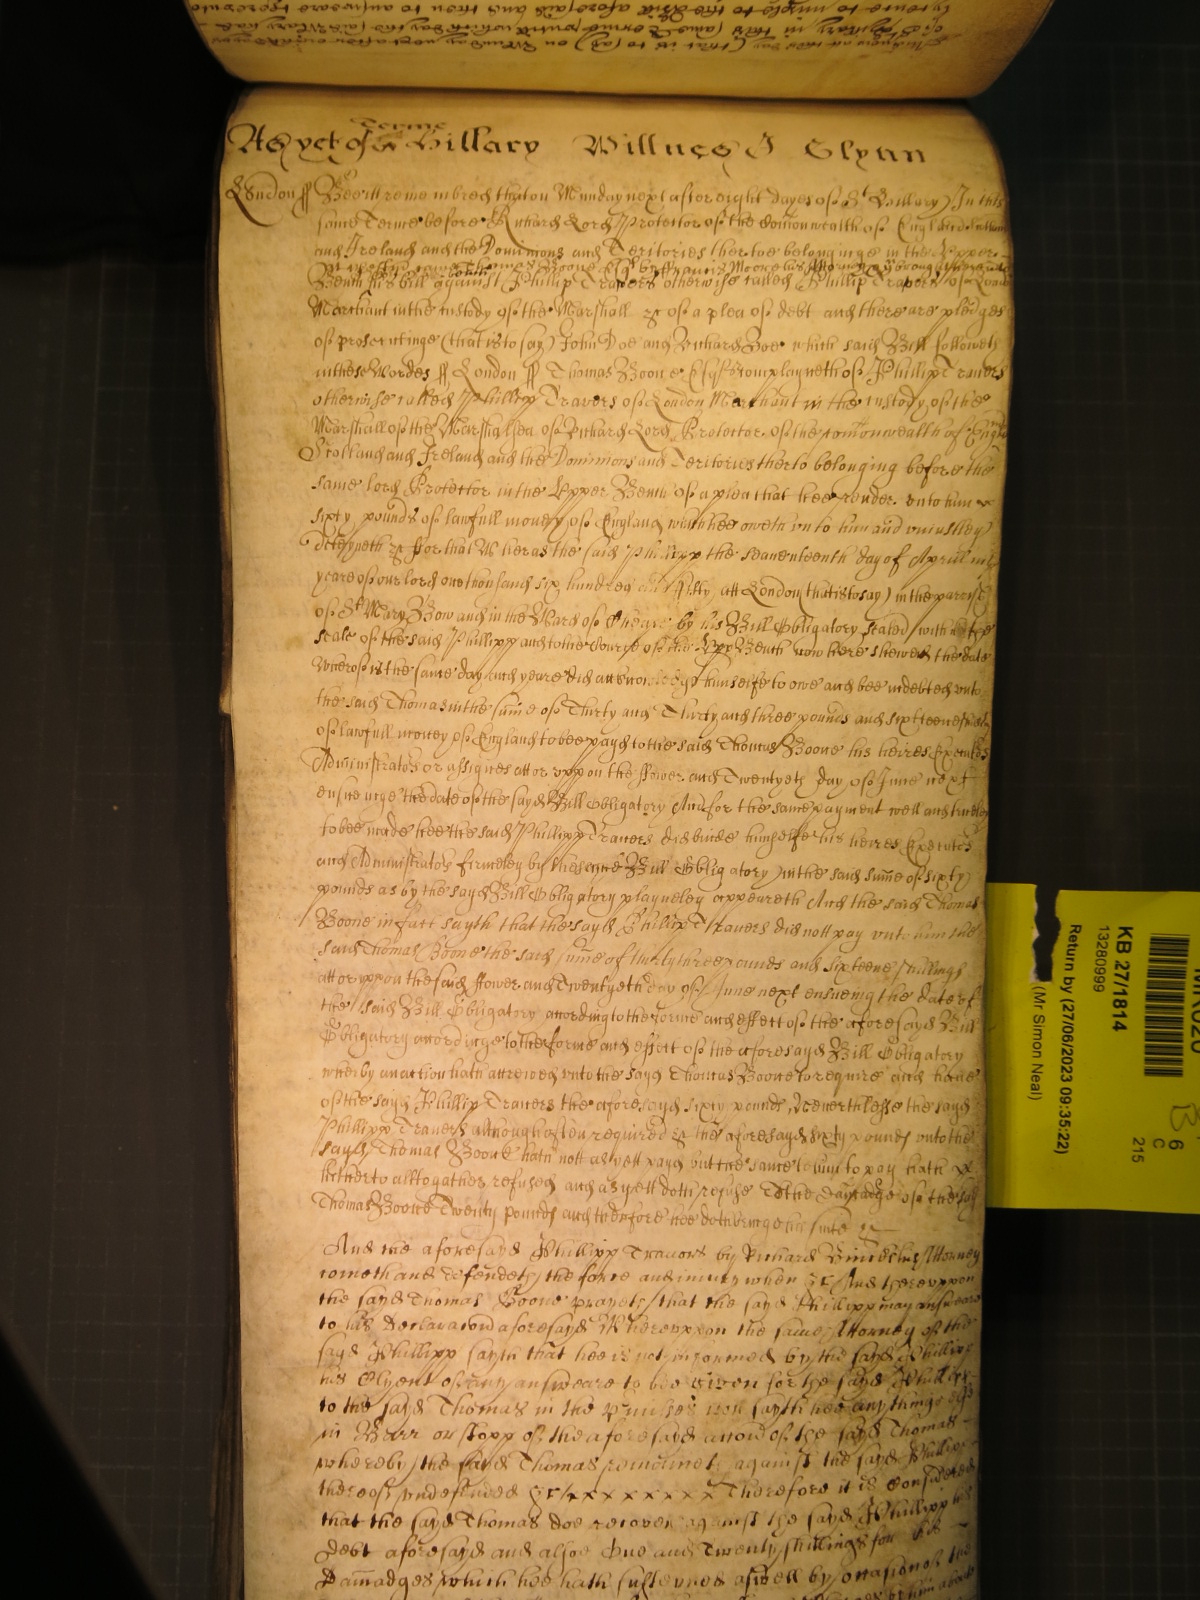 As yet of Hillary Terme Willnes J Glynn
London ss Bee itt remembred that on Munday next after eight dayes of St Hillary In this
same Terme before Richard Lord Protector of the Comonwealth of England Scotland
and Ireland and the Dominions and Teritories thertoe belonginge in the Upper
Bench his bill against Phillip Travers otherwise called Phillip Travers of London
Marchant in the custody of the Marshall &c of a plea of debt and there are pledges
of prosecutinge (that is to say) John Doe and Richard Roe which said Bill followeth
in these Wordes ss London ss Thomas Boone Esqr Complayneth of Phillip Travers
otherwise called Phillip Travers of London Merchant in the custody of the
Marshall of the Marshalsea of Richard Lord Protector of the comonwealth of England
Scotland and Ireland and the Dominions and Teritories therto belonging before the
same lord Protector in the Upper Bench of a plea that hee render unto him
sixty pounds of lawfull money of England which hee oweth unto him and uniustley
deteyneth &c ffor that Wheras the said Phillipp the seaventeenth day of Aprill in
yeare of our lord one thousand six hundred and ffifty att London (that is to say) in the parrish
of St Mary Bow and in the Ward of Cheape by his Bill Obligatory sealed with the
seale of the said Phillipp and to the Course of the Upp Bench now here shewed the date
Wherof is the same day and yeare did acknowledge himselfe to owe and bee indebted unto
the said Thomas in the sume of Thirty and Thirty and three pounds and sixteene shillings
of lawfull money of England to bee payd to the said Thomas Boone his heires Executors
Administrators or assignes att or uppon the ffower and Twentyeth day of June next
ensueinge the date of the sayd Bill Obligatory And for the same payment well and truley
to bee made hee the said Phillipp Travers did binde himselfe his heires Executors
and Administrators firmeley by the same Bill Obligatory in the said sume of sixty
pounds as by the sayd Bill Obligatory playneley appeareth And the said Thomas
Boone in fact sayth that the sayd Phillip Travers did nott pay unto him the
said Thomas Boone the said sume of thirty three pounds and sixteene shillings
att or uppon the said ffower and Twentyeth day of June next ensueing the date of
the said Bill Obligatory according to the forme and effect of the aforesayd Bill
Obligatory accordinge to the forme and effect of the aforesayd Bill Obligatory
wherby an action hath accrewed unto the sayd Thomas Boone to require and have
of the sayd Phillip Travers the aforesayd sixty pounds, Neverthelesse the sayd
Phillipp Travers although often required &c the aforesayd sixty pounds unto the
sayd Thomas Boone hath nott as yett payd but the same to him to pay hath
hitherto alltogather refused and as yett doth refuse To the damadge of the sayd
Thomas Boone Twenty pounds and therefore hee doth bringe his suite &c
And the aforesayd Phillipp Travers by Richard Attorney
cometh and defendeth the force and iniury when &c And thereuppon
the sayd Thomas Boone prayeth that the sayd Phillipp may answeare
to his declaracion aforesayd Whereuppon the same Attorney of the
sayd Phillipp sayth that hee is not informed by the sayd Phillipp
his Clyent of any answeare to bee given for the sayd Phillipp
to the sayd Thomas in the premises nor sayth hee any thinge
in Barr or stopp of the aforesayd accion of the sayd Thomas
whereby the sayd Thomas remaineth against the sayd Phillipp
thereof undefended &c x x x x x x x x Therefore it is Considered
that the sayd Thomas doe recover against the sayd Phillipp his
Debt aforesayd and alsoe One and Twenty shillings for his
Damadges which hee hath susteyned aswell by occasion of the
KB 27/1814
13280999
Return by (27/06/2023 09:35:22)
(Mr Simon Neal)
6
C
215